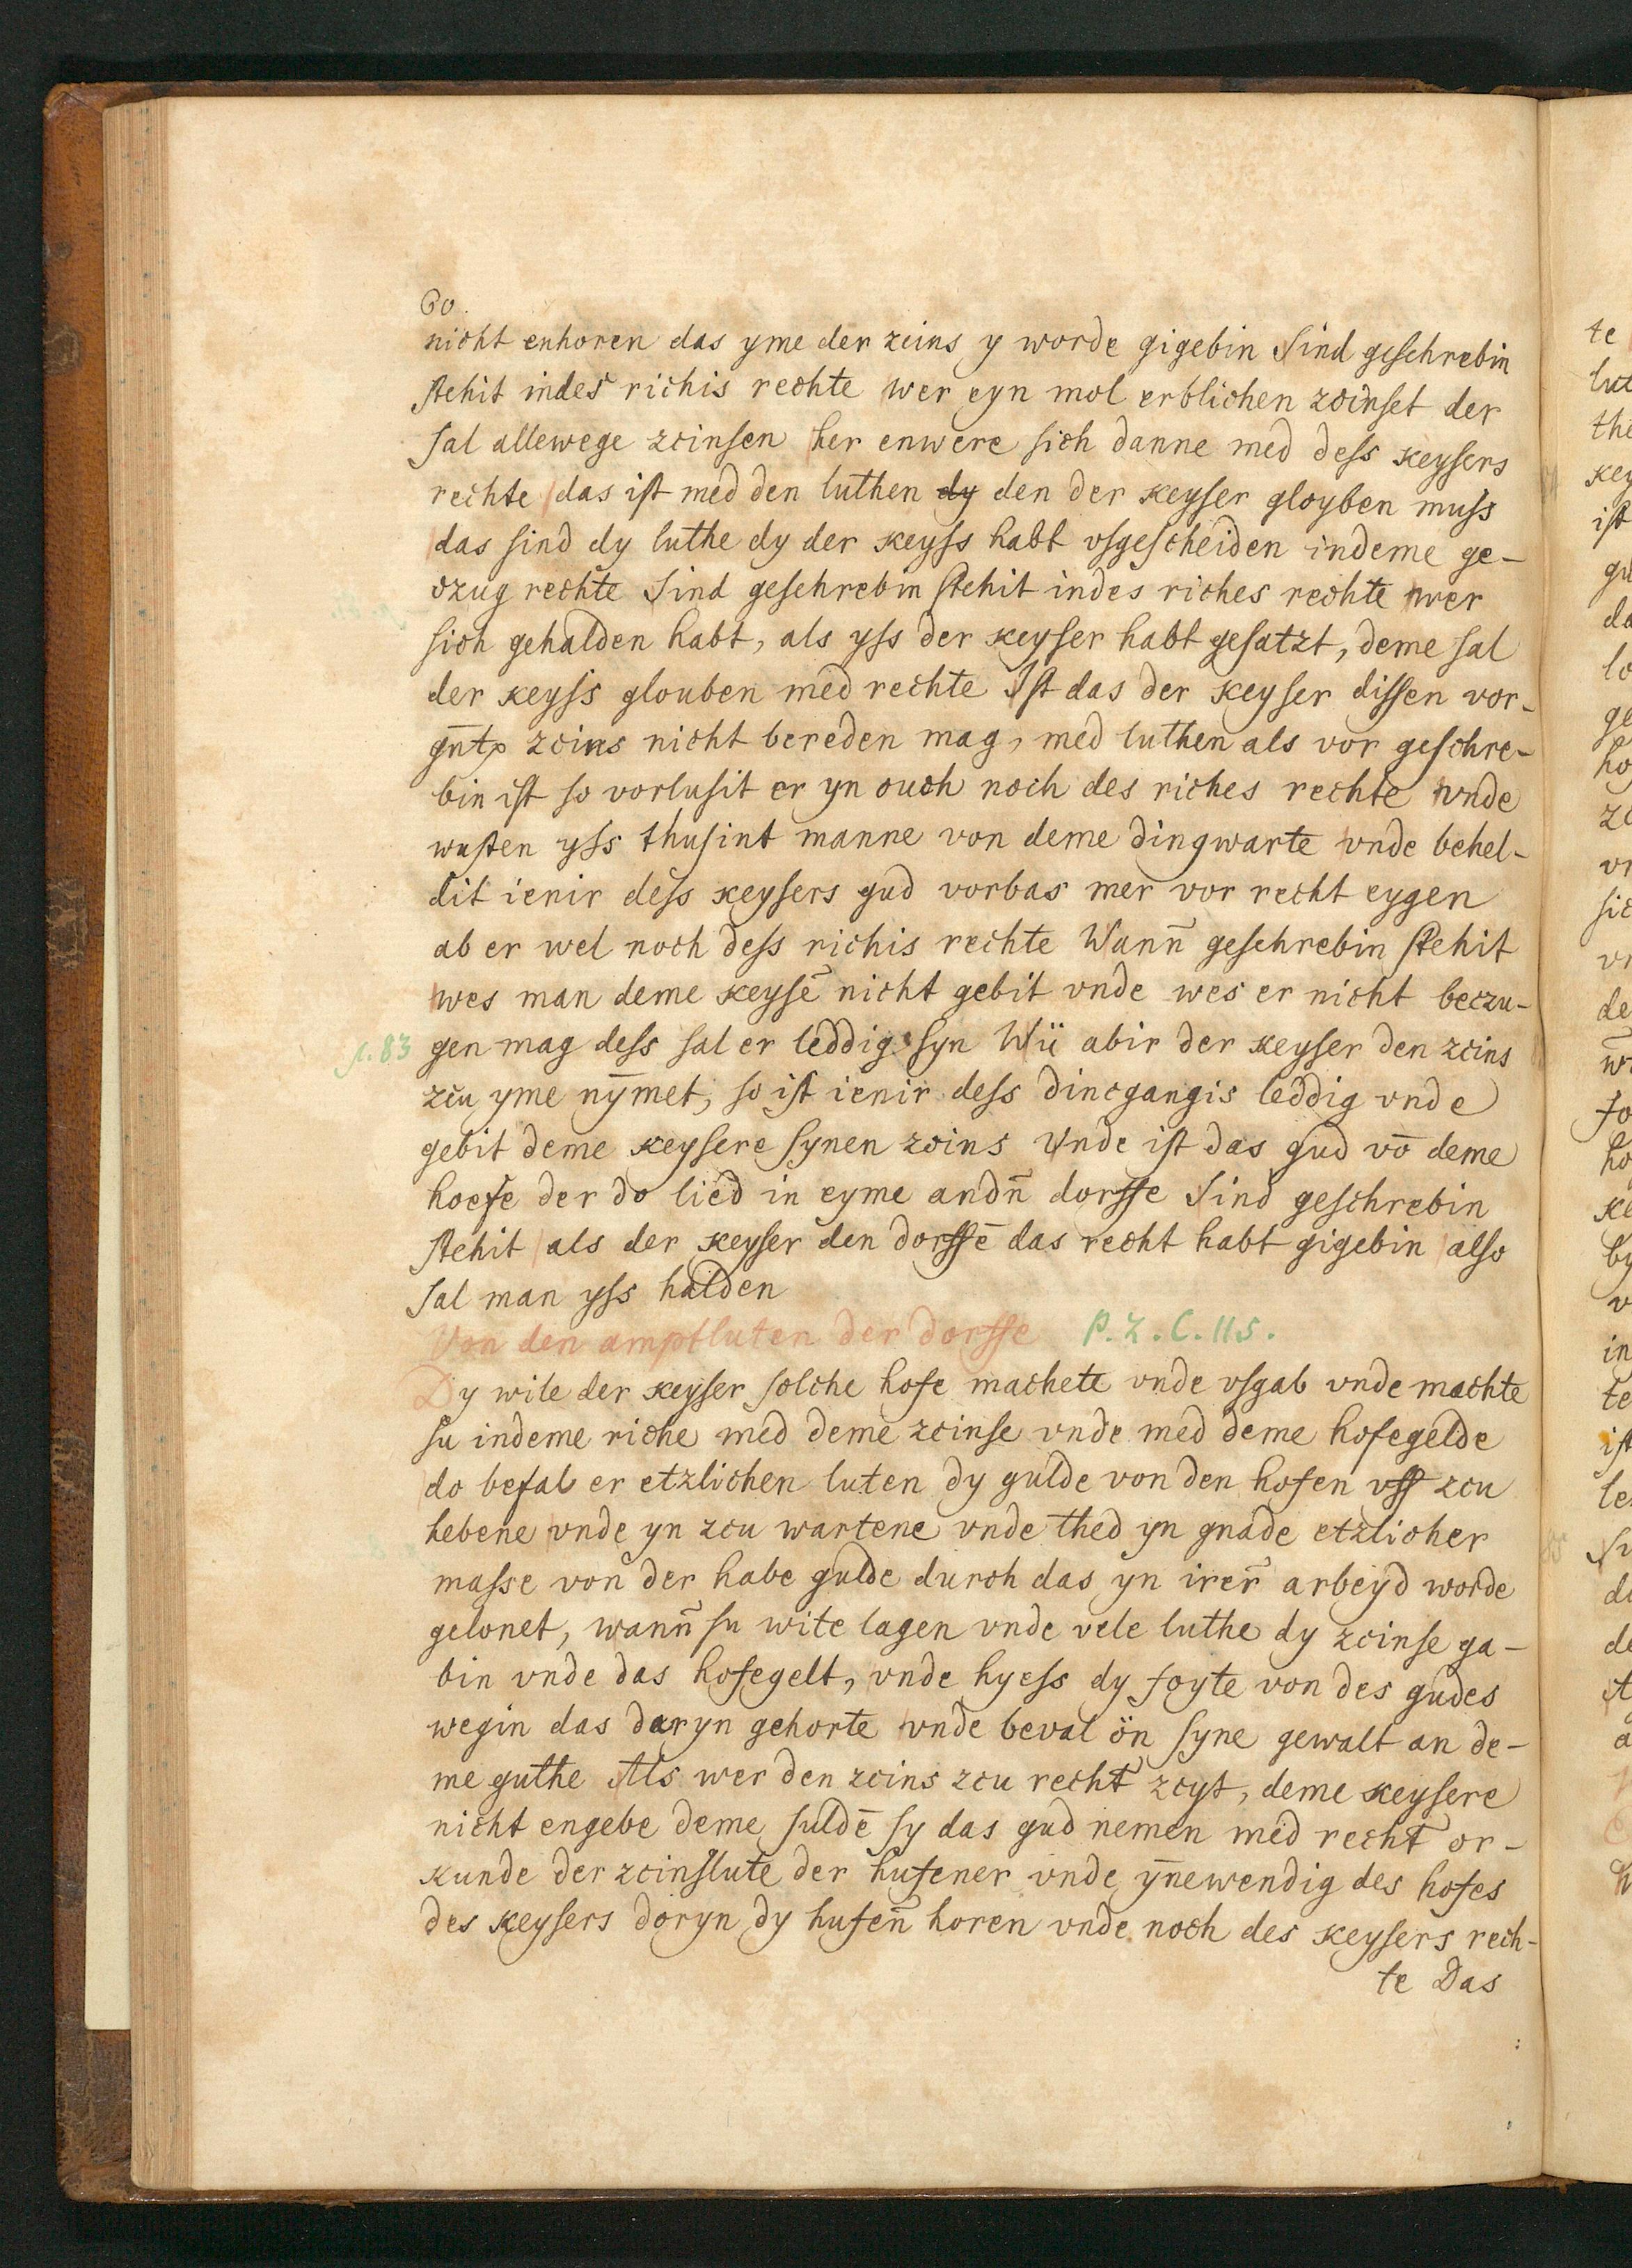 60.
nicht enhoren das yme der zcins y worde gigebin Sind geschrebin
stehit indes richis rechte wer eyn mol erblichen zcinset der
sal allewege zcinsen her enwere sich danne med dess keysers
rechte das ist med den luthen dy den der keyser gloyben muss
das sind dy luthe dy der keyss habt vsgescheiden indeme ge-
czug rechte Sind geschrebin stehit indes riches rechte wer
sich gehalden habt, als yss der keyser habt gesatzt, deme sal
der keyss glouben med rechte Ist das der keyser dissen vor-
zcins nicht bereden mag, med luthen als vor geschre-
bin ist so vorlusit er yn ouch noch des riches rechte vnde
wusten yss thusint manne von deme dingwarte vnde behel-
dit ienir dess keysers gud vorbas mer vor recht eygen
ab er wel noch dess richis rechte Wann̄ geschrebin stehit
wes man deme keysē nicht gebit vnde wes er nicht beczu-
p. 83 gen mag dess sal er leddig syn Wü abir der keyser den zcins
zcu yme nȳmet, so ist ienir dess dincgangis leddig vnde
gebit deme keysere synen zcins Vnde ist das gud vō deme
hoefe der do lied in eyme andn̄ dorffe Sind geschrebin
stehit als der keyser den dorffē das recht habt gigebin also
sal man yss halden
Von den amptluten der dorffe P. 2. C. 115.
Dy wile der keyser solche hofe machete vnde vsgab vnde machte
su indeme riche med deme zcinse vnde med deme hofegelde
do befal er etzlichen luten dy gulde von den hofen vff zcu
hebene vnde yn zcu wartene vnde thed yn gnade etzlicher
masse von der habe gulde durch das yn irer̄ arbeyd worde
gelonet, wann̄ su wite lagen vnde vele luthe dy zcinse ga-
bin vnde das hofegelt, vnde hyess dy foyte von des gudes
wegin das daryn gehorte vnde beval ön syne gewalt an de-
me guthe Als wer den zcins zcu recht̄ zcyt, deme keysere
nicht engebe deme suldē sy das gud nemen med recht̄ or-
kunde der zcinslute der hufener vnde ȳnewendig des hofes
des keysers doryn dy hufen̄ horen vnde noch des keysers rech-
te Das